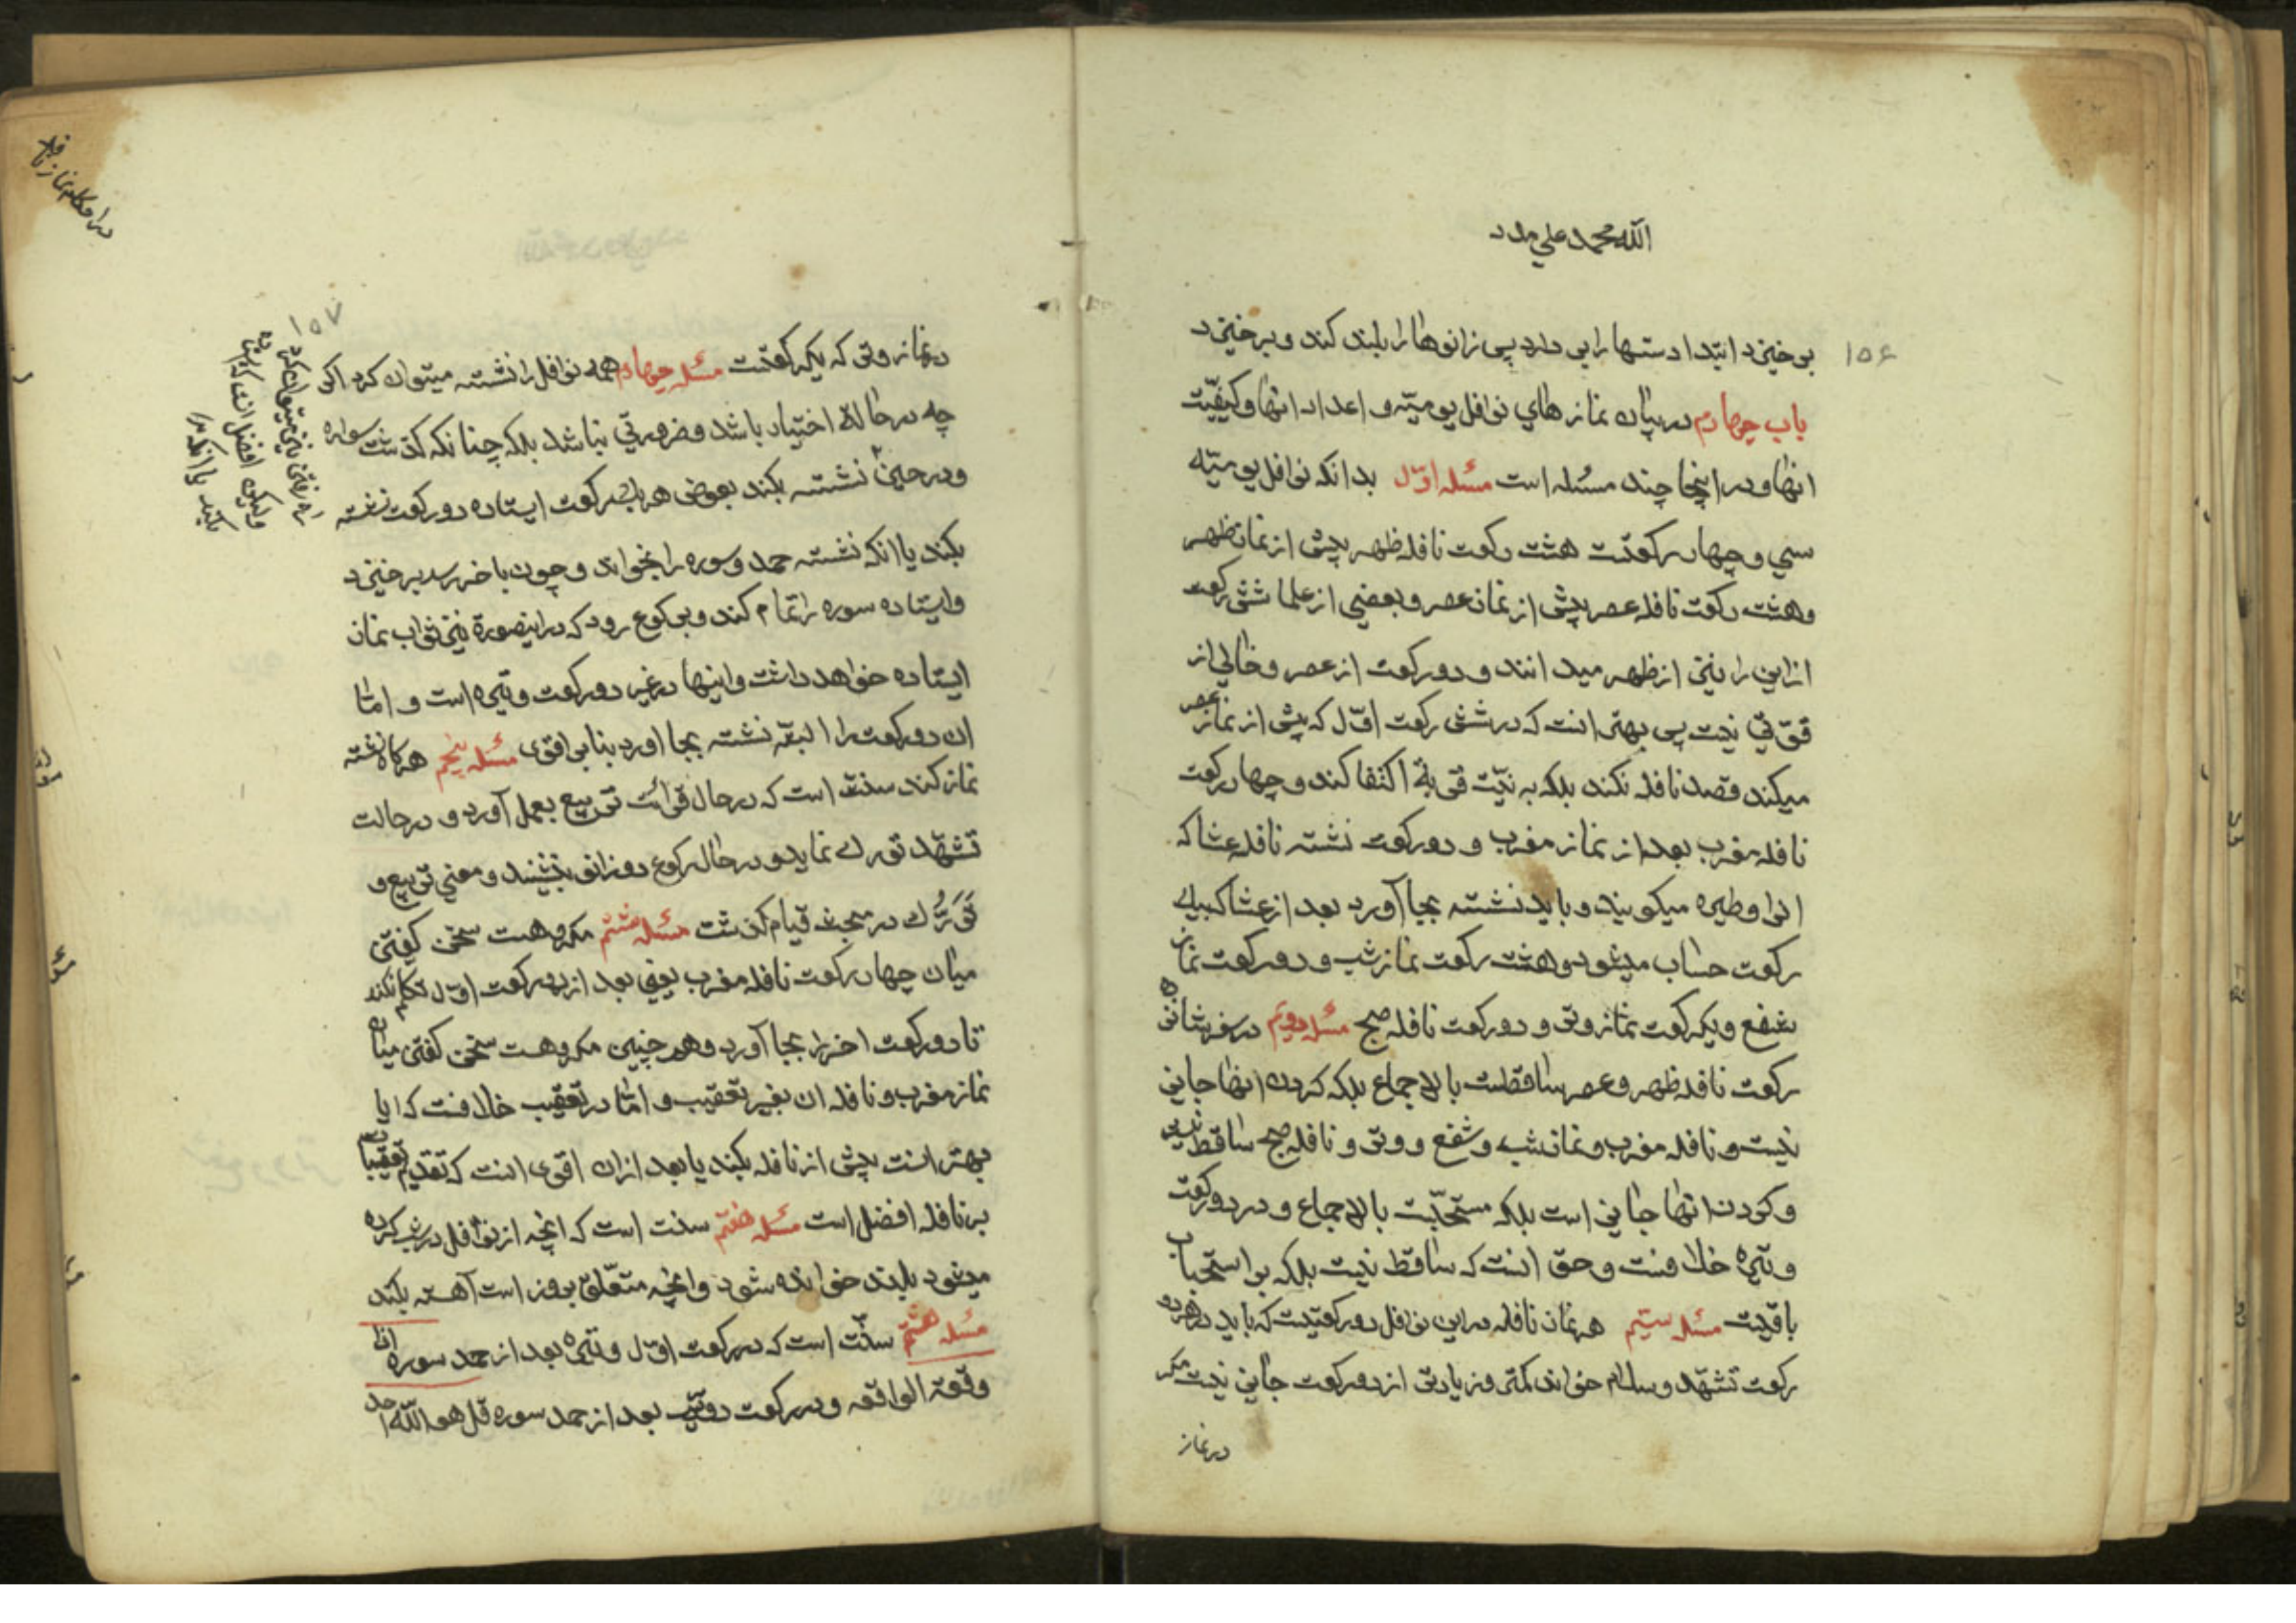 الله محمد علي مدد
۱۵۶
بر خیزد ابتدا دستها را بر دارد پس زانوها را بلند کند و برخیزد
باب چهارم در بیان نمازهای نوافل یومیّه و اعداد انها و کیفیّت
انها و در اینجا چند مسئله است مسئله اوّل بدانکه نوافل یومیّه
سي و چهار رکعتست هشت رکعت نافله ظهر پیش از نماز ظهر
و هشت رکعت نافله عصر پیش از نماز عصر و بعضی از علما شش رکعت
از این را نیز از ظهر میدانند و دو رکعت از عصر و خالی از
قوّتی نیست پس بهتر انست که در شش رکعت اوّل که پیش از نماز عصر
میکند قصد نافله نکند بلکه به نیّت قربة اکتفا کند و چهار رکعت
نافله مغرب بعد از نماز مغرب و دو رکعت نشسته نافله عشا که
انرا وطیره میکویند و باید نشسته بجا آورد بعد از عشا که بیك
رکعت حساب میشود و هشت رکعت نماز شب و دو رکعت نماز
شفع و یکرکعت نماز وتر و دو رکعت نافله صبح مسئله دویّم در سفر شانزده
رکعت نافله ظهر و عصر ساقطست بالاجماع بلکه کردن انها جایز
نیست و نافله مغرب و نماز شب و شفع و وتر و نافله صبح ساقط نیست
و کردن انها جایز است بلکه مستحبّست بالاجماع و در دو رکعت
وتیره خلافست و حق انست که ساقط نیست بلکه بر استحباب
باقیست مسئله سیّم هر نماز نافله در این نوافل دو رکعتیست که باید در هر دو
رکعت تشهّد و سلام خواند کمتر و زیادتر از دو رکعت جایز نیست مکر
در نماز
در احکام نماز نافله
۱۵۷
در نماز وتر که یکرکعتست مسئله چهارم همه نوافل را نشسته میتوان کرد اکر
چه در حالة اختیار باشد و ضرورتي نباشد بلکه چنانکه کذشت سواره
و در حین نشسته بکند بعوض هر یك رکعت ایستاده دو رکعت نشسته
راه رفتن نیز میتوان کرد
ولیکن افضل انست که
بکند یا انکه
بکند یا انکه نشسته حمد و سوره را بخواند و چون باخر رسد برخیزد
و ایستاده سوره را تمام کند و برکوع رود که در اینصورة نیز ثواب نماز
ایستاده خواهد داشت و اینها در غیر دو رکعت وتیره است و امّا
ان دو رکعت را البتّه نشسته بجا اورد بنابر اقوی مسئله پنجم هرکاه نشسته
نماز کند سنّت است که در حال قرائت تربیع بعمل آورد و در حالت
تشهّد تورك نماید و در حال رکوع دو زانو بنشیند و معنی تربیع و
تَوَرُّك در مبحث قیام کذشت مسئله ششم مکروهست سخن کفتن
میان چهار رکعت نافله مغرب یعنی بعد از دو رکعت اوّل تکلّم نکند
تا دو رکعت اخر را بجا آورد و هم چنین مکروهست سخن کفتن میان
نماز مغرب و نافله ان بغیر تعقیب و امّا در تعقیب خلافست که ایا
بهتر انست پیش از نافله بکند یا بعد از ان اقوی انست که تقدیم تعقیب
بر نافله افضل است مسئله هفتم سنت است که انچه از نوافل در شب کرده
میشود بلند خوانده شود و انچه متعّلق بروز است آهسته بکند
مسئله هشتم سنّت است که در رکعت اوّل وتیره بعد از حمد سوره اذا
وقعة الواقعه و در رکعت دویّم بعد از حمد سوره قل هو اللّه احد